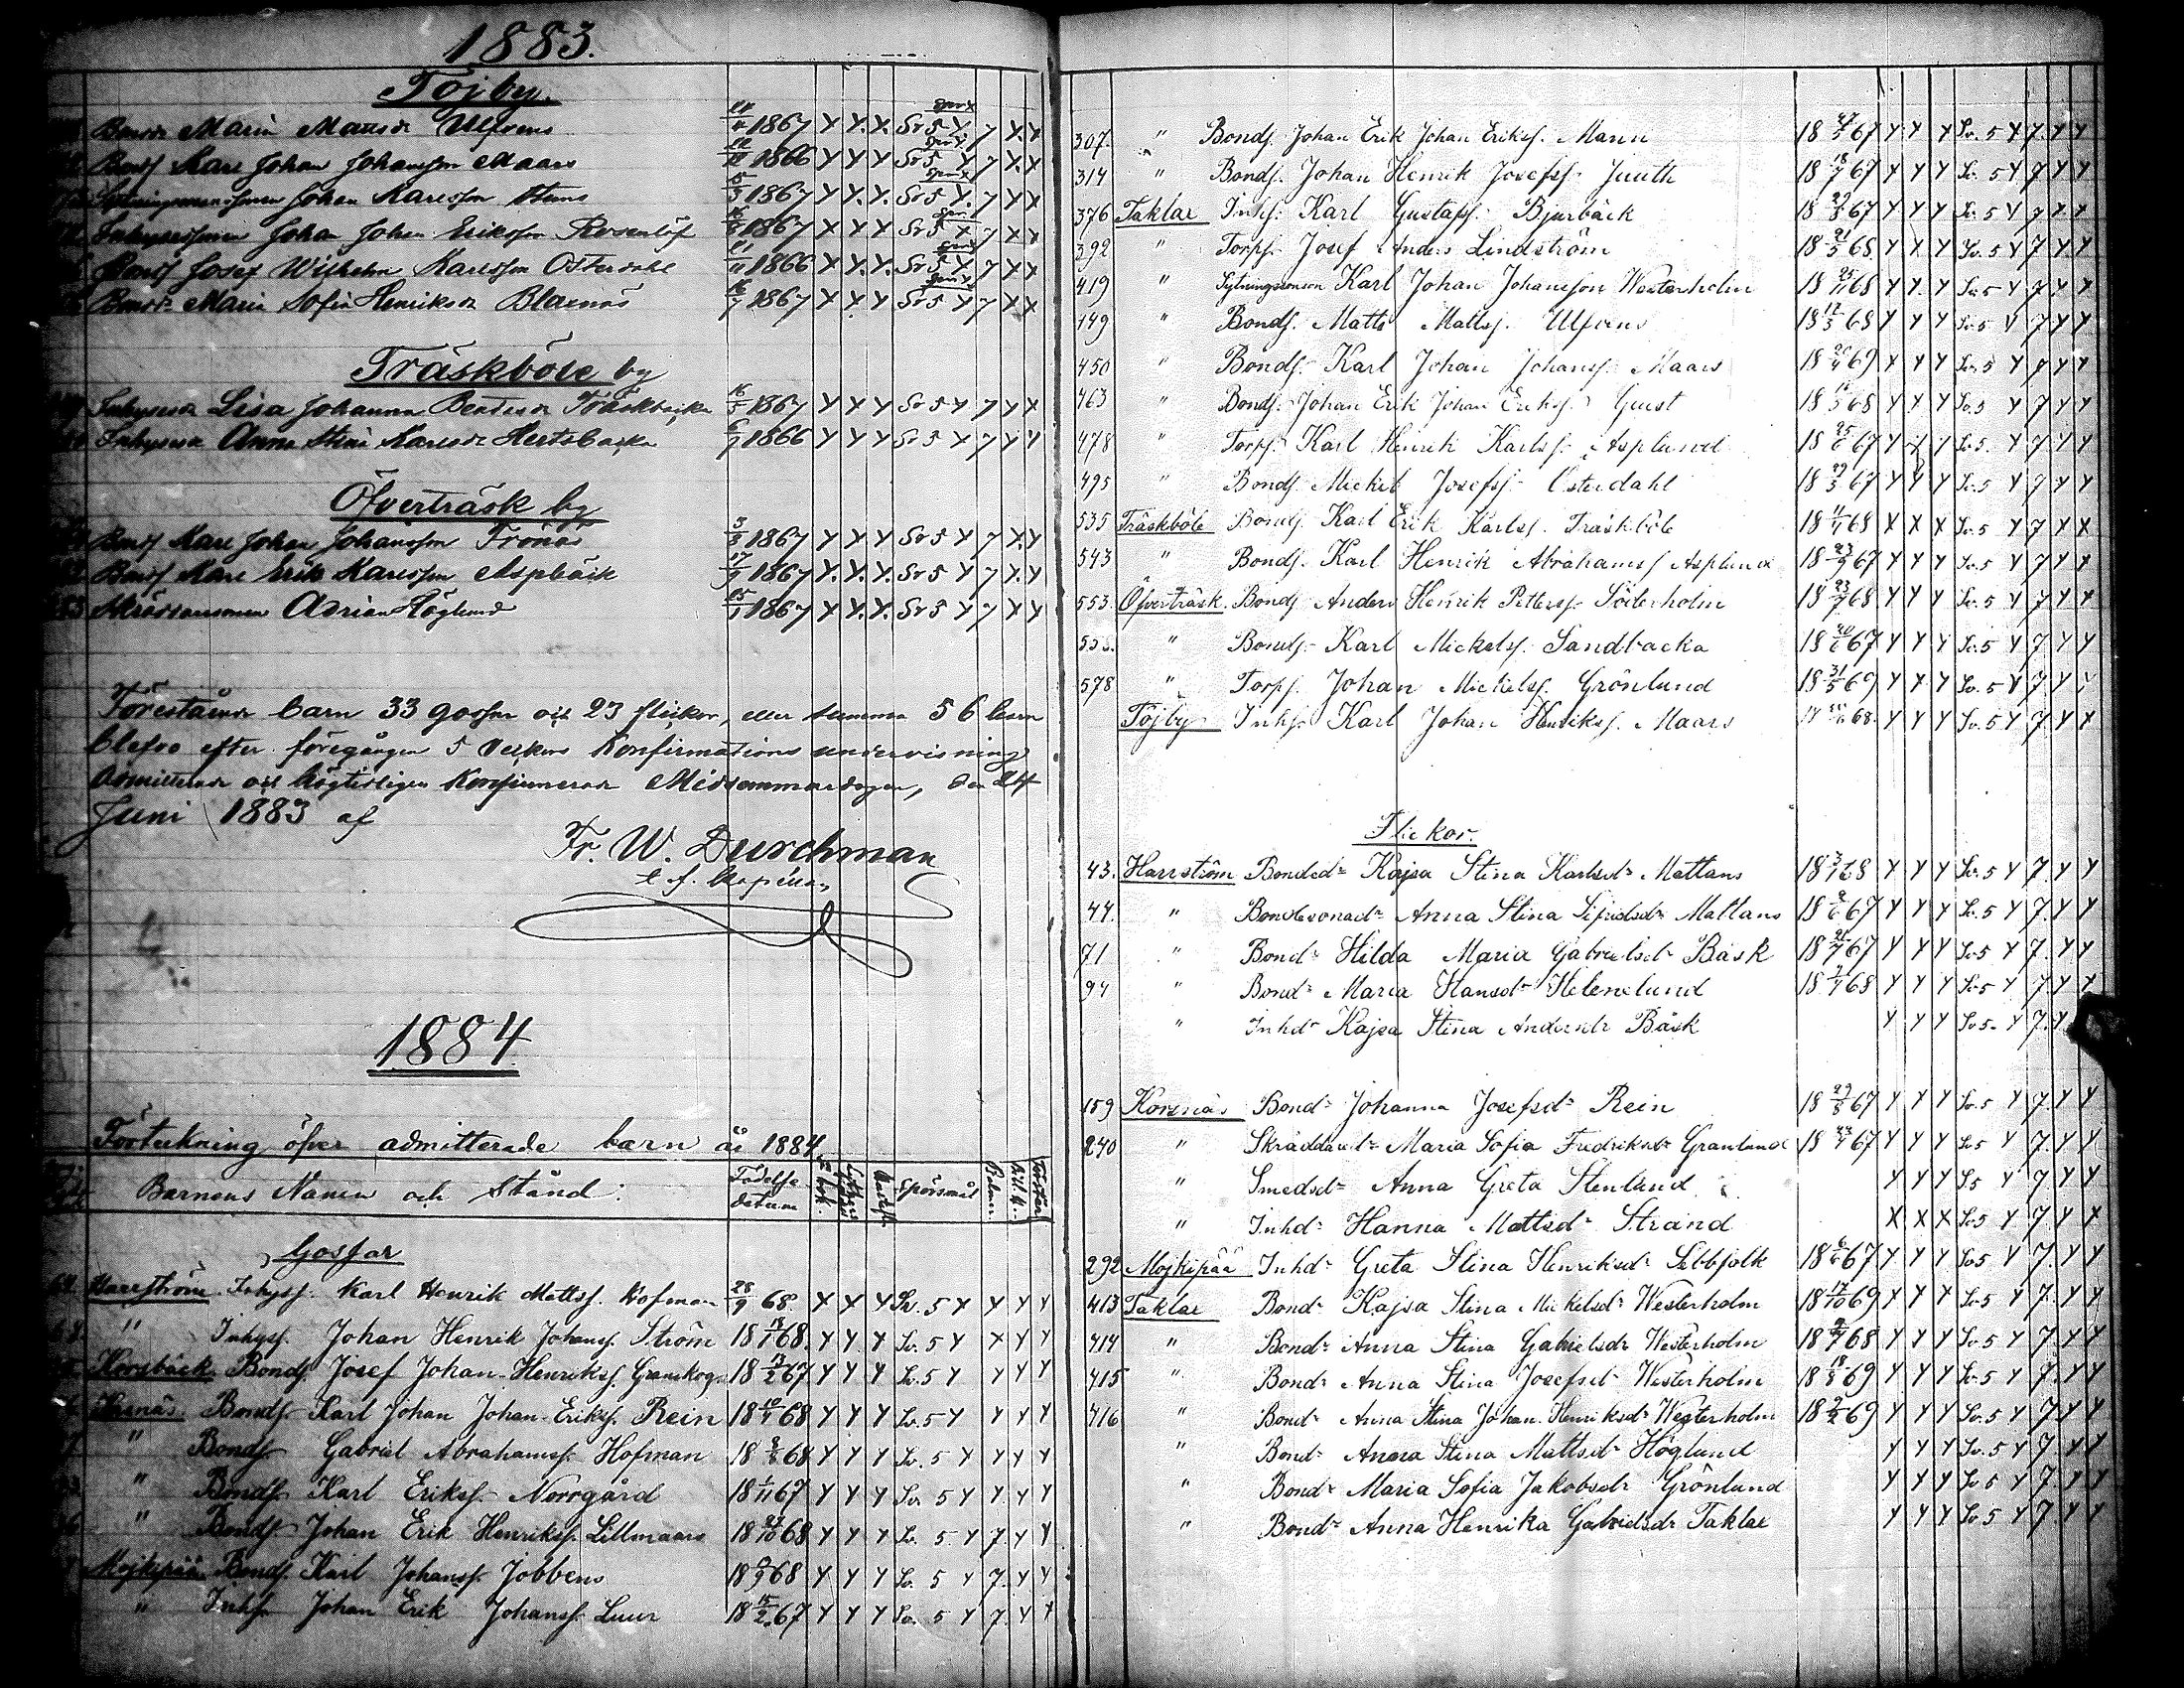 1883.
Töjby.
Bondr Maria Mattsdr Ulfvens 1867 Y Y. Y. Sv 5 Y. 7 Y. Y
Bondf Karl Johan Johansson Maars 1866 Y Y Y Sv 5 Y 7 Y. Y
Johan Karlsson 15/3 1867 Y Y. Y. Sv 5 Y. 7 Y Y
Johan Johan Eriksson Rosenlöf 1867 Y Y. Y. Sv 5 Y 7 Y Y
Bondf Josef Wilhelm Karlsson Österdahl 1866 Y Y. Y. Sv 5 Y. 7 Y Y
Bondr Maria Sofia Henriksdr Blaxnäs 16/7 1867 Y Y. Y Sv 5 Y 7 Y Y
Träskböle by
Inhysesdr Lisa Johanna Träskbacka 16/5 1867 Y Y Y Sv 5 Y 7 Y Y
Inhysesdr Anna Stina Karlsdr Hertsbacka 6/9 1866 Y Y Y Sv 5 Y 7 Y Y
Öfverträsk by
Bondf Karl Johan Johansson Frönäs 1867 Y Y Y Sv 5 Y 7 Y. Y
Bondf Karl Erik Karlsson Aspbäck 17/9 1867 Y. Y. Y. Sv 5 Y 7 Y. Y
Skräddaresonen Adrian Höglund 25/1 1867 Y Y. Y. Sv 5 Y 7 Y Y
Förestående barn 33 gossar och 23 flickor, eller summa 56 barn
blefvo efter föregången 5 veckors Konfirmations undervisning
admitterade och högtidligen Konfirmerade Midsommardagen, den 24
Juni 1883 af
Fr. W. Durchman
t. f. Kaplan
1884
Förteckning öfver admitterade barn år 1884.
Barnens Namn och Stånd. Födelse datum Spörsmål
Gossar
Harrström Inhysf. Karl Henrik Mattsf. Hofman 28/9 68. Y Y Y Sv. 5 Y Y Y Y
" Inhysf. Johan Henrik Johansf. Ström 18 68. Y Y Y Sv. 5 Y Y Y Y
Korsbäck Bondf. Josef Johan-Henriksf. Granskog 18 13/2 67 Y Y Y Sv. 5 Y Y Y Y
Korsnäs Bondf. Karl Johan Johan-Eriksf. Rein 18 68 Y Y Y Sv. 5 Y Y Y Y
" Bondf. Gabriel Abrahamsf. Hofman 18 68 Y Y Y Sv. 5 Y Y Y Y
" Bondf. Karl Eriksf. Norrgård 18 1/11 67 Y Y Y Sv 5 Y Y. Y Y
" Bondf. Johan Erik Henriksf. Lillmaars 18 68 Y Y Y Sv. 5 Y 7. Y Y
Mojkipää Bondf. Karl Johansf. Jobbens 18 68 Y Y Y Sv. 5 Y 7. Y Y
" Inhf. Johan Erik Johansf. Luur 18 15/2 67 Y Y Y Sv. 5 Y 7. Y Y
307. " Bondf. Johan Erik Johan Eriksf. Mann 18 67 Y Y Y Sv. 5 Y 7. Y Y
314 " Bondf. Johan Henrik Josefsf. Juuth 18 18/7 67 Y Y Y Sv. 5 Y 7 Y Y
376 Taklax Inhf. Karl Gustafsf. Bjurbäck 18 67 Y Y Y Sv. 5 Y 7 Y Y
392 " Torpf. Josef Anders Lindström 18 21/5 68 Y Y Y Sv. 5 Y 7 Y Y
419 " Sytningssonson Karl Johan Johansson Westerholm 18 25/11 68 Y Y Y Sv. 5 Y 7 Y Y
149 " Bondf. Matts Mattsf. Ulfvens 18 12/3 68 Y Y Y Sv. 5 Y 7 Y Y
450 " Bondf. Karl Johan Johansf. Maars 18 69 Y Y Y Sv. 5 Y 7 Y Y
463 " Bondf. Johan Erik Johan Eriksf. Gust 18 68 Y Y Y Sv. 5 Y 7 Y Y
478 " Torpf. Karl Henrik Karlsf. Asplund 18 25/6 67 Y Y Y Sv. 5. Y 7 Y Y
495 " Bondf. Mickel Josefsf. Österdahl 18 29/3 67 Y Y Y Sv. 5 Y 7 Y Y
535 Träskböle Bondf. Karl Erik Karlsf. Träskböle 18 68 Y Y Y Sv. 5 Y 7 Y Y
543 " Bondf. Karl Henrik Abrahamsf. Asplund 18 23/9 67 Y Y Y Sv. 5 Y 7 Y Y
553. Öfverträsk. Bondf. Anders Henrik Pettersf. Söderholm 18 23/7 68 Y Y Y Sv. 5 Y 7. Y Y
" Bondf. Karl Mickelsf. Sandbacka 18 20/6 67 Y Y Y Sv. 5 Y 7 Y Y
578 " Torpf. Johan Mickelsf. Grönlund 18 31/5 69 Y Y Y Sv. 5 Y 7 Y
Töjby Inhf. Karl Johan Henriksf. Maars 68. Y Y Y Sv. 5 Y 7 Y Y
Flickor.
43. Harrström Bondedr Kajsa Stina Karlsdr Mattans 18 3/1 68 Y Y Y Sv. 5 Y 7. Y Y
44. " Bondesonadr Anna Stina Sifridsdr Mattans 18 67 Y Y Y Sv. 5 Y 7. Y Y
71 " Bondr Hilda Maria Gabrielsdr Bäsk 18 67 Y Y Y Sv 5 Y 7. Y Y
94 " Bondr Maria Hansdr Helenelund 18 68 Y Y Y Sv 5 Y 7. Y Y
" Inhdr Kajsa Stina Andersdr Bäsk Y Y Y Sv 5. Y 7. Y
159 Korsnäs Bondr Johanna Josefsdr Rein 18 29/8 67 Y Y Y Sv. 5 Y 7. Y Y
240 " Skräddaredr Maria Sofia Fredriksdr Granlund 18 67 Y Y Y Sv 5 Y 7. Y Y
" Smedsdr Anna Greta Stenlund Y Y Y S5 Y 7 Y Y
" Inhdr Hanna Mattsdr Strand Y Y Y Sv 5 Y 7. Y Y
292 Mojkipää Inhdr Greta Stina Henriksdr Sebbfolk 18 6/6 67 Y Y Y Sv 5 Y 7. Y Y
413 Taklax Bondr Kajsa Stina Mickelsdr Westerholm 18 17/10 69 Y Y Y Sv 5 Y 7. Y Y
414 " Bondr Anna Stina Gabrielsdr Westerholm 18 68 Y Y Y Sv. 5 Y 7. Y Y
415 " Bondr Anna Stina Josefsdr Westerholm 18 69 Y Y Y Sv. 5 Y 7. Y Y
416 " Bondr Anna Stina Johan Henriksdr Westerholm 18 69 Y Y Y Sv. 5 Y 7. Y Y
" Bondr Anna Stina Mattsdr Höglund Y Y Y Sv. 5 Y 7. Y Y
" Bondr Maria Sofia Jakobsdr Grönlund Y Y Y Sv 5 Y 7. Y Y
" Bondr Anna Henrika Gabrielsdr Taklax Y Y Y Sv 5 Y 7 Y Y